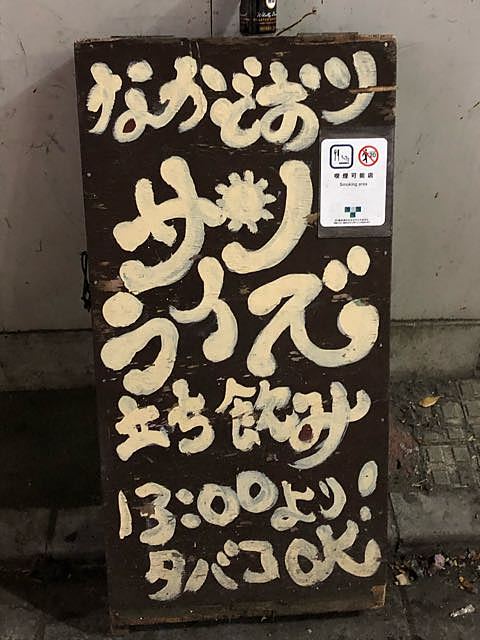 なかどおり
サン
ライズ
立ち飲み
13:00より!
タバコOK
喫煙可能店
Smoking area
20